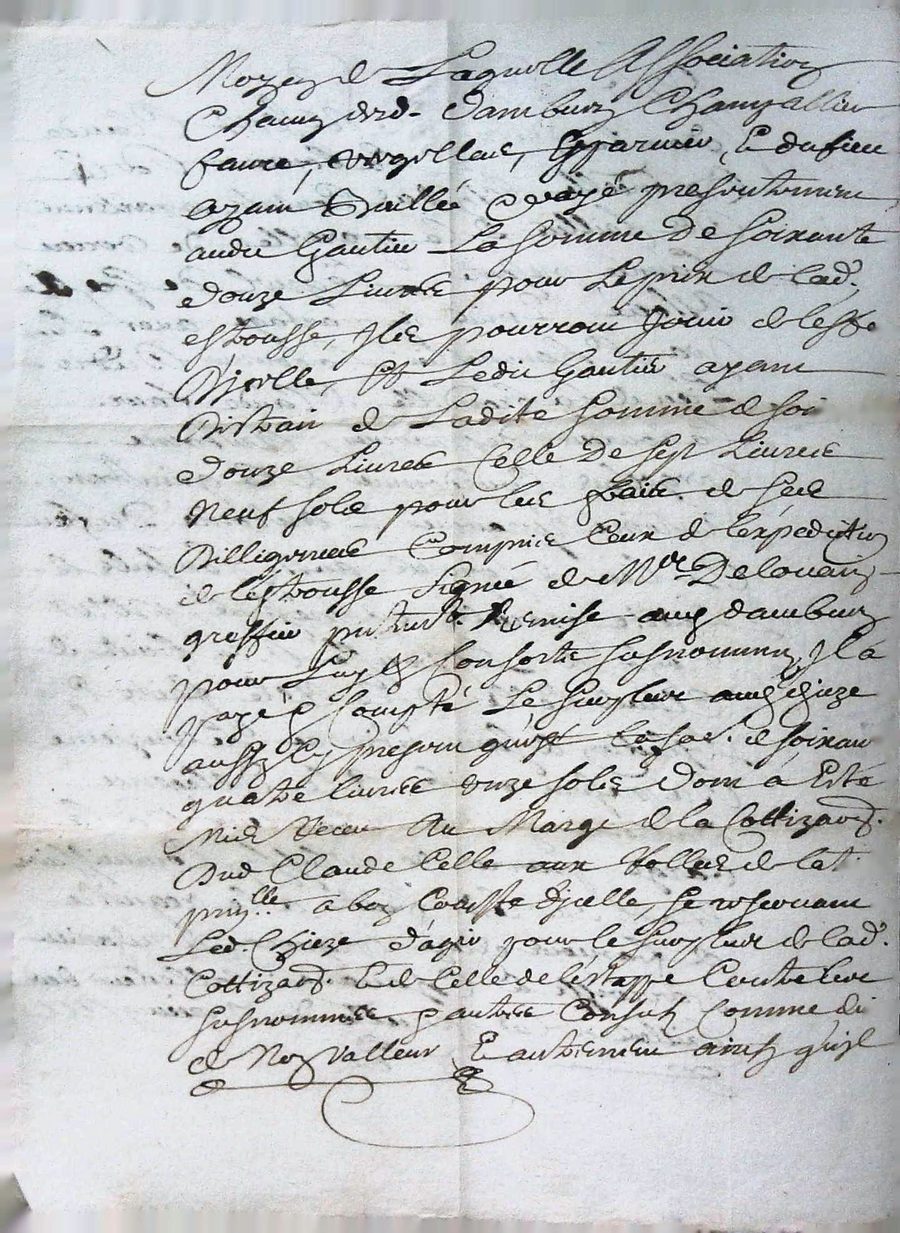 Moyen de Laquelle Association
Chaugierd. dambuy Champallier
faure, Epparvier, Et dufieu
ayant Baillé & payé presentement
audit Gautier La Somme de Soixante
douze Livres pour Le prix de lad.
estrousse, Ils pourront Jouir de
D'icelle, Et Ledit Gautier ayant
distrait de Ladite Somme de Soi
douze Livres Celle De Sept Livres
Neuf Sols pour les frais de Ses
dilligences Compris Ceux de l'expedition
de lestrousse Signée de Mr Delouain
greffier Remise aud dambuy
pour Luy & Consorts Susnommés, Il a
payé & Compté Le Surplus aud Chieze
aussy presant qu'est la So. de Soixan
quatre livres onze Sols Dont a Esté
Mis Receu Au Marge de la Cottizaon.
Dud Claude Celle aux Rolles de lad.
a bon Compte d'icelle, Se reservant
Led. Chieze d'agir pour le Surplus de lad.
Cottizaon. Et de Celle de l'estappe Contre les
Susnommés & autres Consuls Comme de
de Non Valleur Et autrement ainsy qu'il